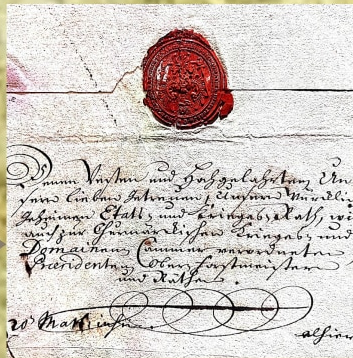 Denen Vesten und Hochgelahrten Un
sern lieben Getreuen, Unsern Würckli
Geheimen Etats, und Krieges Rath, wie
auch zur Churmärkischen Krieges, und
Domainen Cammer verordneten
Præsidenten, Ober Forstmeistern
und Räthen.
alhier